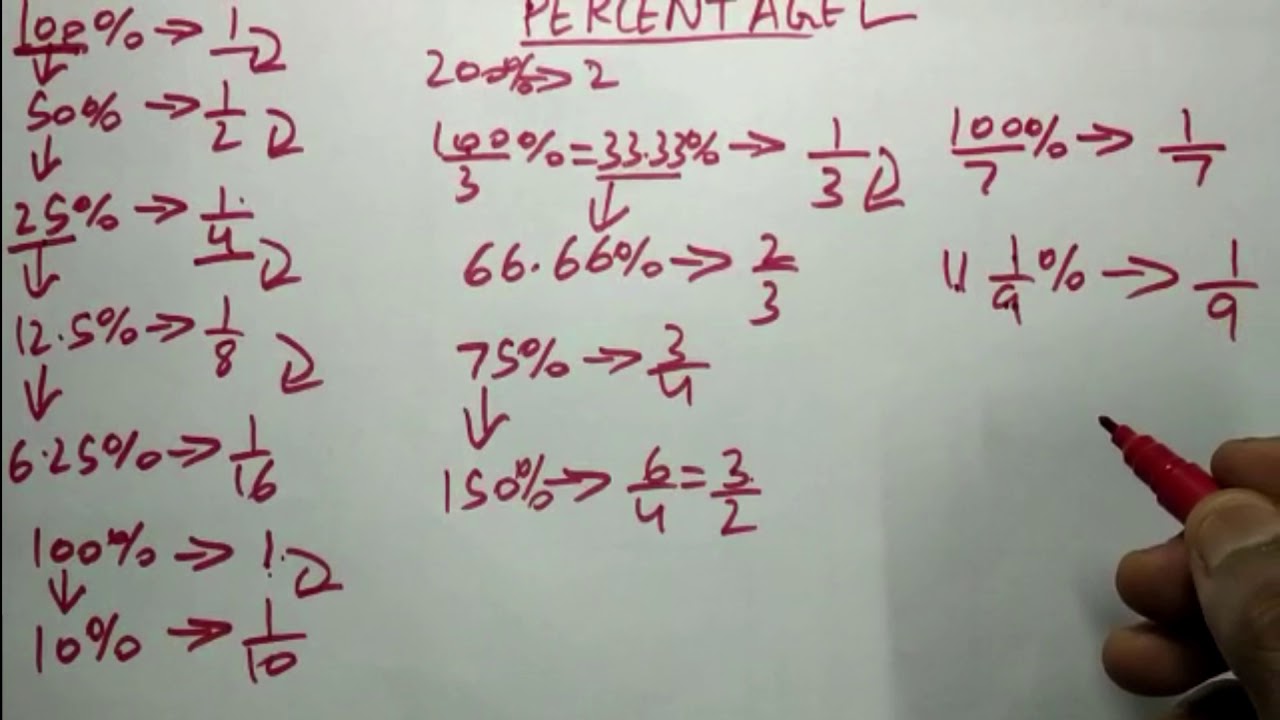 PERCENTAGE
100% → 1
50% → 1/2
25% → 1/4
12.5% → 1/8
6.25% → 1/16
100% → 1
10% → 1/10
200% → 2
100/3% = 33.33% → 1/3
66.66% → 2/3
75% → 3/4
150% → 6/4 = 3/2
100/7% → 1/7
11 1/9% → 1/9